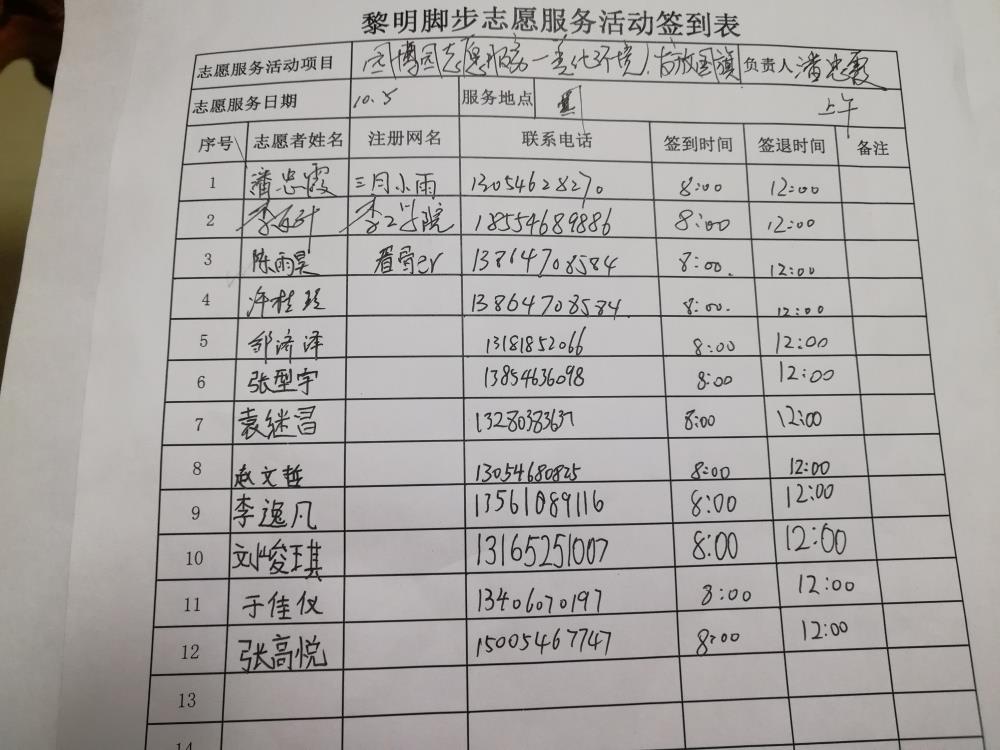 黎明脚步志愿服务活动签到表
志愿服务活动项目 园博园志愿服务—美化环境,发放国旗 负责人 潘忠霞
志愿服务日期 10.5 服务地点 上午
序号 志愿者姓名 注册网名 联系电话 签到时间 签退时间 备注
1 潘忠霞 三月小雨 13054628270 8:00 12:00
2 18554689886 8:00 12:00
3 陈雨昊 13864708584 8:00. 12:00
4 许桂玲 13864708584. 8:00. 12:00
5 邹济泽 13181852066 8:00 12:00
6 张型宇 13854636098 8:00 12:00
7 袁继昌 13280383637 8:00 12:00
8 赵文哲 13054680825 8:00 12:00
9 李逸凡 13561089116 8:00 12:00
10 刘峻琪 13165251007 8:00 12:00
11 于佳仪 13406070197 8:00 12:00
12 张高悦 15005467747 8:00 12:00
13
14